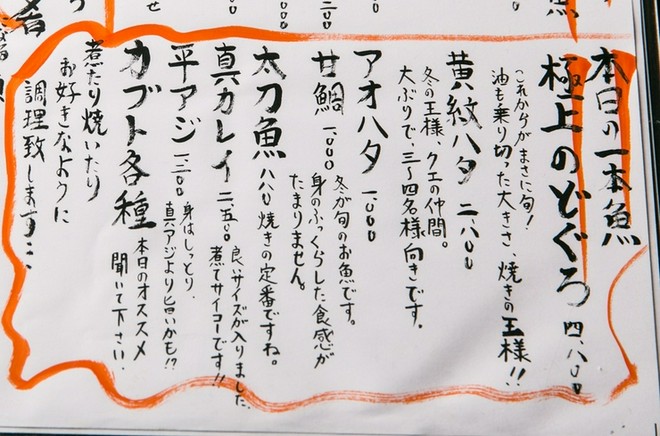 本日の一本魚
極上のどぐろ 四、八〇〇
これからがまさに旬!
油も乗り切った大きさ、焼きの王様!!
黄紋ハタ 二、八〇〇
冬の王様、クエの仲間。
大ぶりで、三〜四名様向きです。
アオハタ 一、〇〇〇
冬が旬のお魚です。
甘鯛 一、〇〇〇
身のふっくらした食感が
たまりません。
太刀魚 八八〇
焼きの定番ですね。
真カレイ 二、五〇〇
良いサイズが入りました。
煮てサイコーです!!
平アジ 一、二〇〇
身はしっとり、
真アジより旨いかも!?
カブト各種
本日のオススメ
聞いて下さい。
煮たり焼いたり
お好きなように
調理致します…